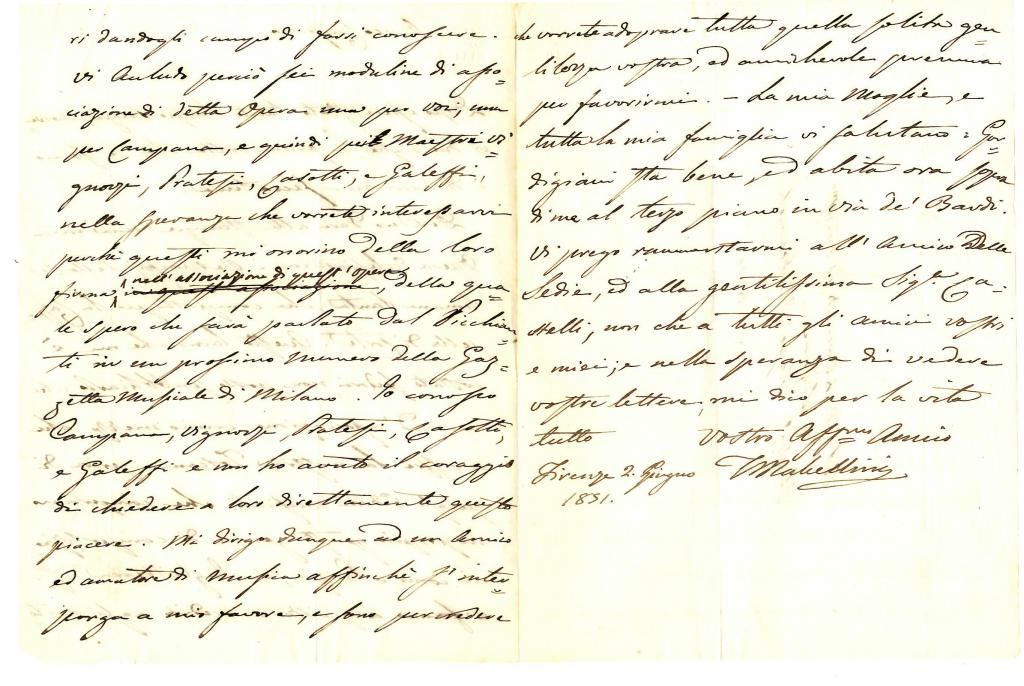 ri dandogli campo di farsi conoscere.
Vi Acludo perciò sei moduline di asso=
ciazione di detta Opera una per voi, una
per Campana, e quindi pei Maestri Vi=
gnozzi, Pratesi, Casotti, e Galeffi,
nella speranza che vorrete interessarvi
perchè questi mi onorino della loro
nell'associazione di quest'opera
firma, in questa associazione, della qua=
le spero che sarà parlato dal Picchian=
ti in un prossimo numero della Gaz=
zetta Musicale di Milano. Io conosco
Campana, Vignozzi, Pratesi, Casotti,
e Galeffi e non ho avuto il coraggio
di chiedere a loro direttamente questo
piacere. Mi dirigo dunque ad un Amico
ed amatore di Musica affinchè s'inter=
ponga a mio favore, e sono per credere
che vorrete adoprare tutta quella solita gen=
tilezza vostra, ed amichevole premura
per favorirmi. — La mia Moglie, e
tutta la mia famiglia vi salutano = Gor=
digiani sta bene, ed abita ora sopra
di me al terzo piano in via de' Bardi.
Vi prego rammentarmi all'Amico Delle
Sedie, ed alla gentilissima Sigª Ca=
stelli, non che a tutti gli amici vostri
e miei; e nella speranza di vedere
vostre lettere, mi dico per la vita
tutto Vostro Affmo Amico
Firenze 2. Giugno TMabellini
1851.